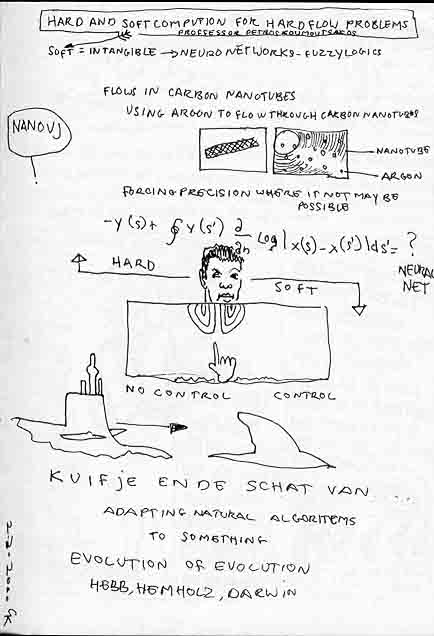 HARD AND SOFT COMPUTION FOR HARD FLOW PROBLEMS
PROFFESSOR PETROS KOUMOUTSAKOS
SOFT = INTANGIBLE → NEURO NETWORKS - FUZZY LOGICS
FLOWS IN CARBON NANOTUBES
USING ARGON TO FLOW THROUGH CARBON NANOTUBES
NANOVJ
NANOTUBE
ARGON
FORCING PRECISION WHERE IT NOT MAY BE
POSSIBLE
-γ(s)+ ∮ γ(s') ∂/∂n Log | x(s) - x(s') | ds' = ?
HARD
SOFT
NEURAL
NET
NO CONTROL
CONTROL
KUIFJE EN DE SCHAT VAN ...
ADAPTING NATURAL ALGORITEMS
TO SOMETHING
EVOLUTION OF EVOLUTION
HEBB, HEMHOLZ, DARWIN